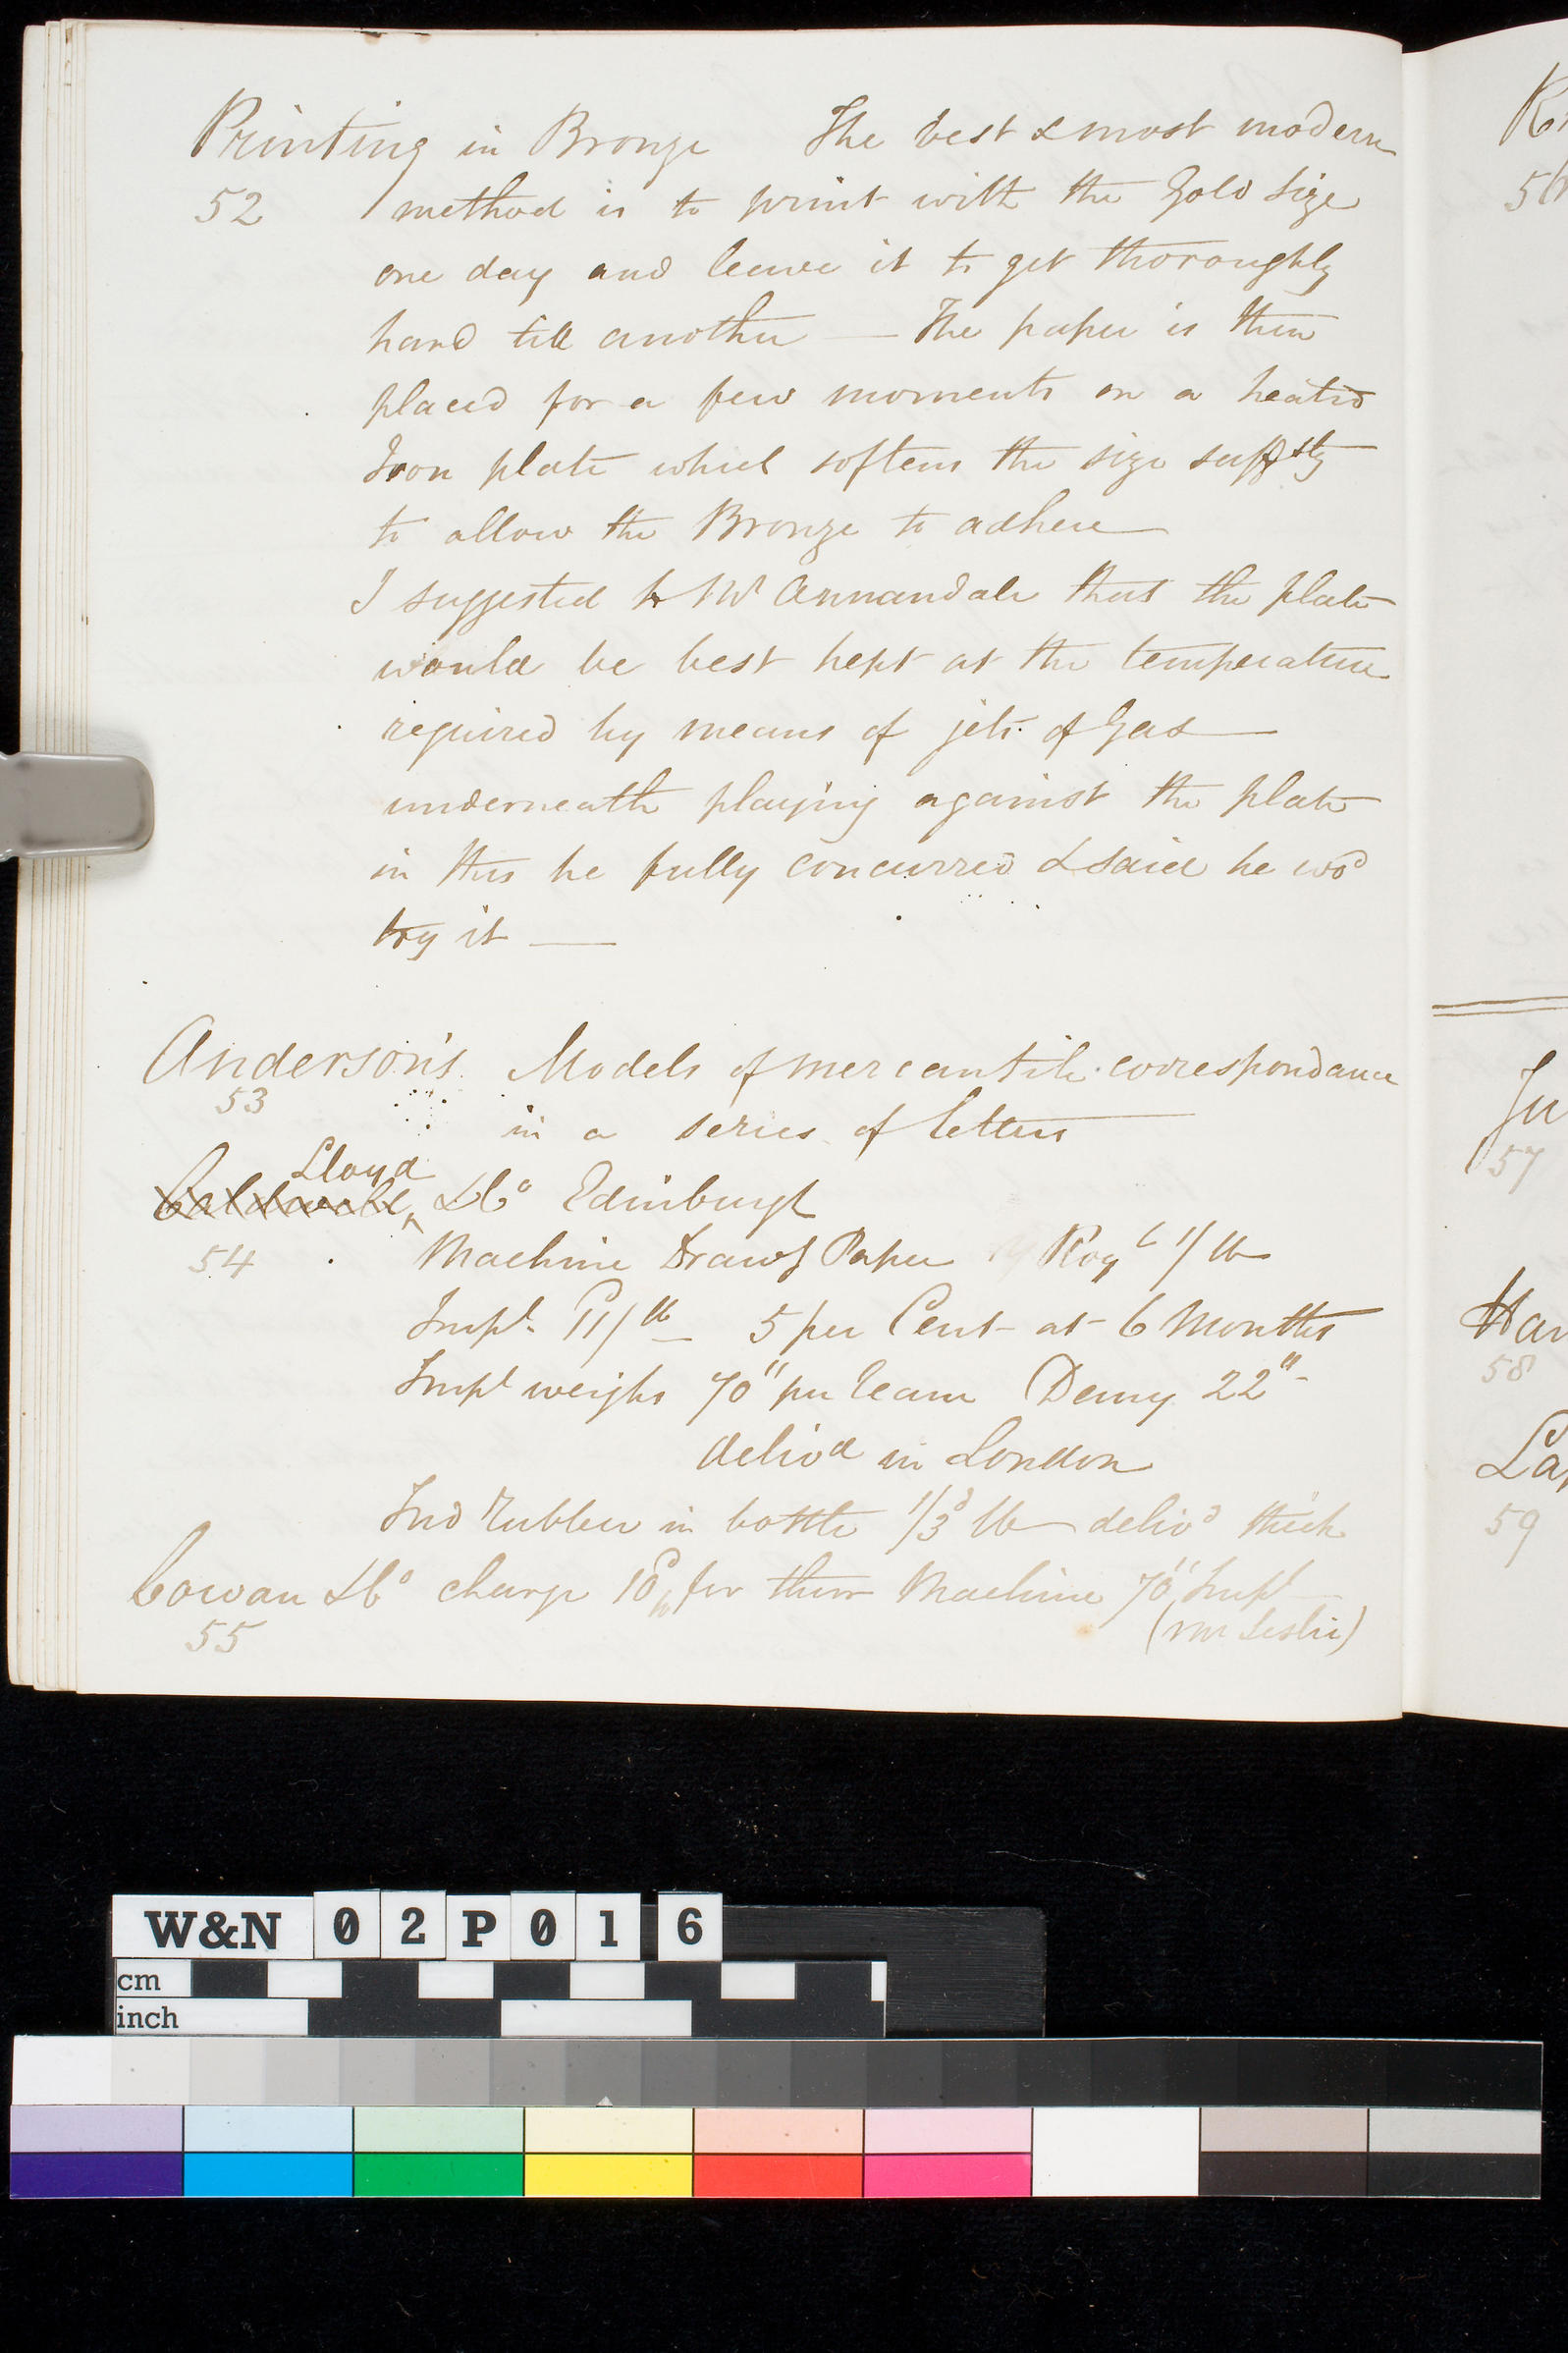 Printing in Bronze The best & most modern
52 method is to print with the Gold Size
one day and leave it to get thoroughly
hard till another — The paper is then
placed for a few moments on a heated
Iron plate which softens the size suffstly
to allow the Bronze to adhere —
I suggested to Mr Annandale that the plate
would be best kept at the temperature
required by means of jets of Gas —
underneath playing against the plate
in this he fully concurred & said he wod
try it —
Anderson's Models of mercantile correspondance
53
in a series of letters
Lloyd
Caldwell, & Co Edinburgh
54 Machine Drawg Paper Roy 1/ lb
Impl 11/lb — 5 per Cent at 6 Months
Impl weighs 70" per ream Demy 22"
delivd in London
Ind rubber in bottle 1/3d lb delivd thick
Cowan & Co charge 10d for their Machine 70" Impl
55 (Mr Leslie)
R
56
Ju
57
Har
58
La
59
W&N 02P016
cm
inch